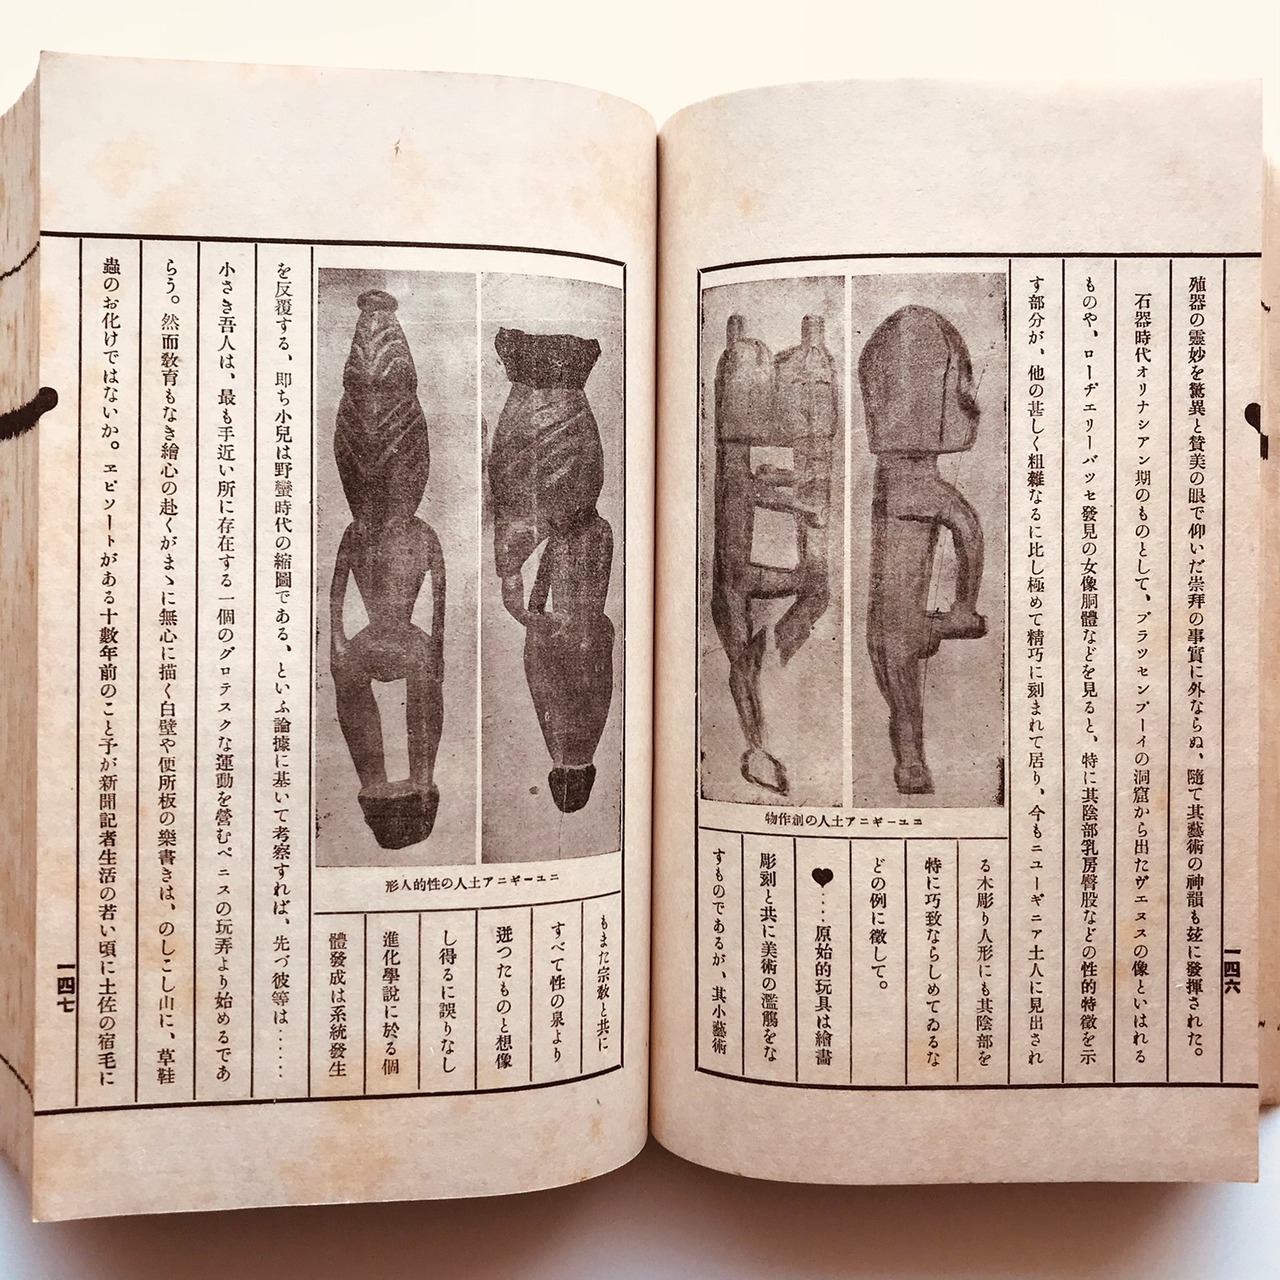 殖器の靈妙を驚異と賛美の眼で仰いだ崇拜の事實に外ならぬ、隨て其藝術の神韻も玆に發揮された。
石器時代オリナシアン期のものとして、ブラツセンプーイの洞窟から出たヴエヌスの像といはれる
ものや、ローヂエリーバツセ發見の女像胴體などを見ると、特に其陰部乳房臀股などの性的特徵を示
す部分が、他の甚しく粗雜なるに比し極めて精巧に刻まれて居り、今もニューギニア土人に見出され
る木彫り人形にも其陰部を
特に巧致ならしめてゐるな
どの例に徵して。
♥‥‥原始的玩具は繪畵
彫刻と共に美術の濫觴をな
すものであるが、其小藝術
ニユーギニア土人の創作物
一四六
もまた宗敎と共に
すべて性の泉より
迸つたものと想像
し得るに誤りなし
進化學說に於る個
體發成は系統發生
ニユーギニア土人の性的人形
を反覆する、卽ち小兒は野蠻時代の縮圖である、といふ論據に基いて考察すれば、先づ彼等は‥‥‥
小さき吾人は、最も手近い所に存在する一個のグロテスクな運動を營むペニスの玩弄より始めるであ
らう。然而敎育もなき繪心の赴くがまゝに無心に描く白壁や便所板の樂書きは、のしこし山に、草鞋
蟲のお化けではないか。ヱピソートがある十數年前のこと予が新聞記者生活の若い頃に土佐の宿毛に
一四七